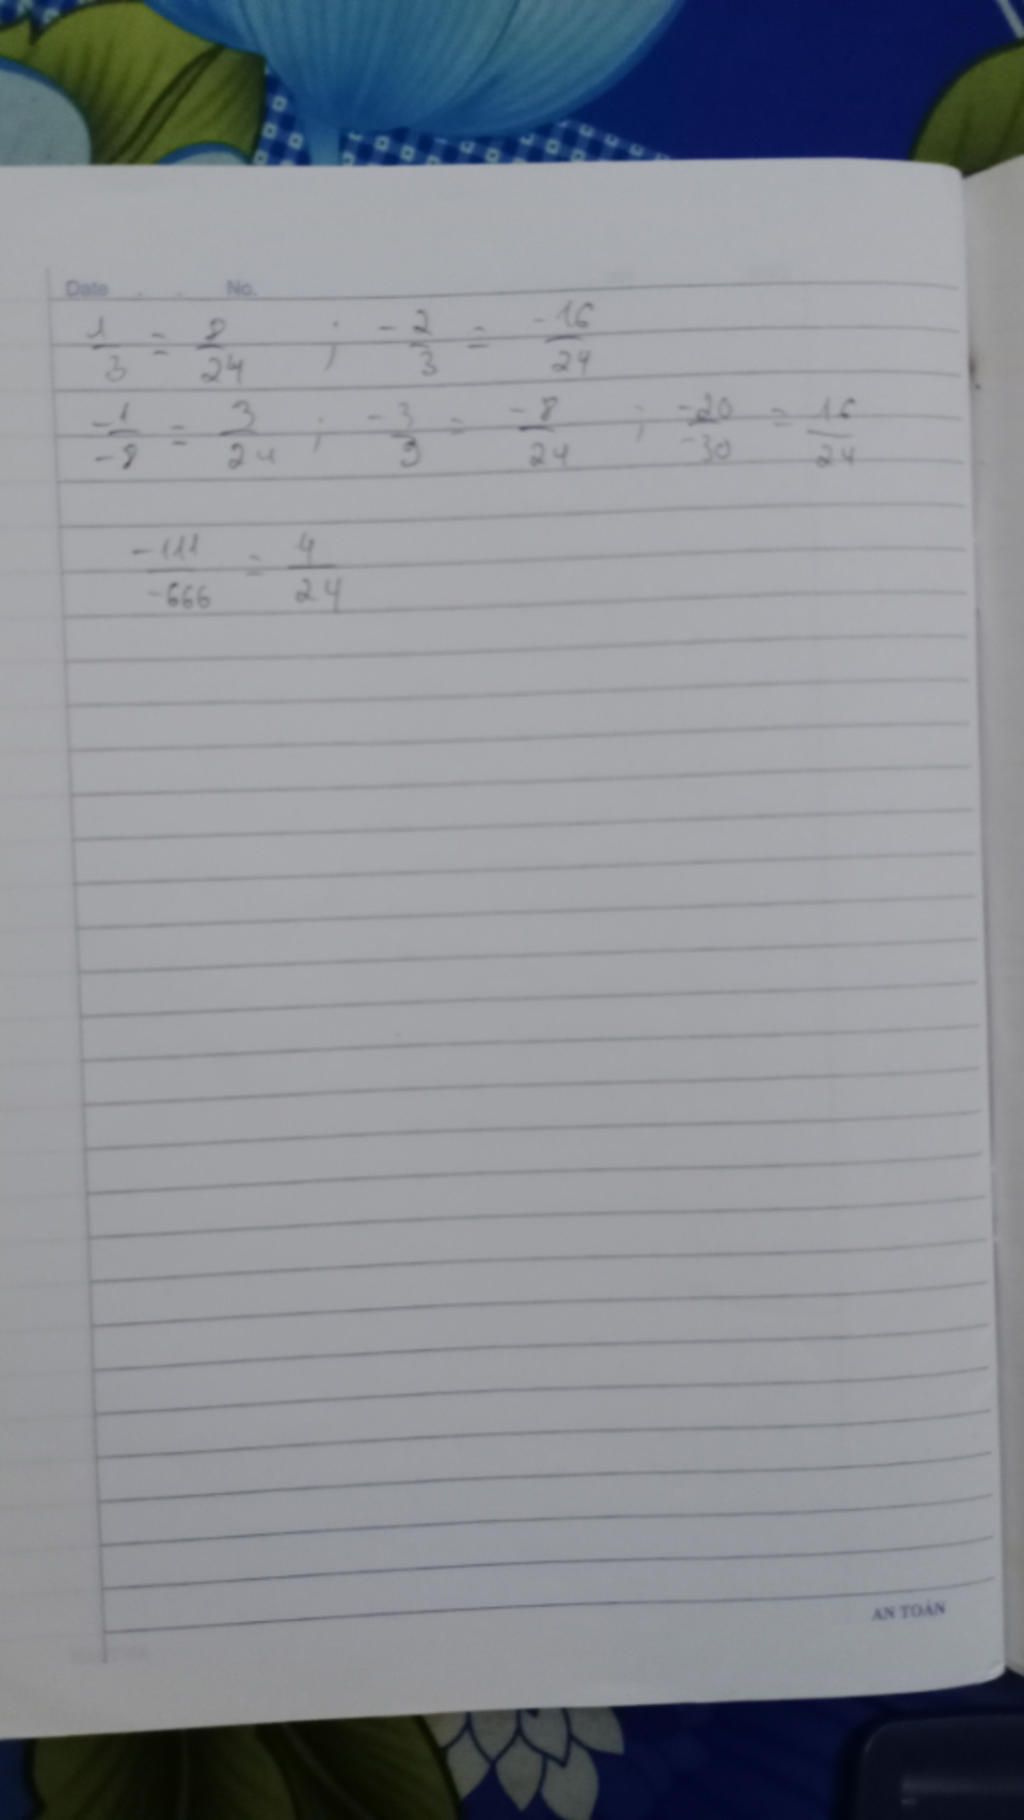 Date . . No.
1/3 = 8/24 ; -2/3 = -16/24
-1/-8 = 3/24 ; -3/9 = -8/24 ; -20/-30 = 16/24
-111/-666 = 4/24
AN TOÀN